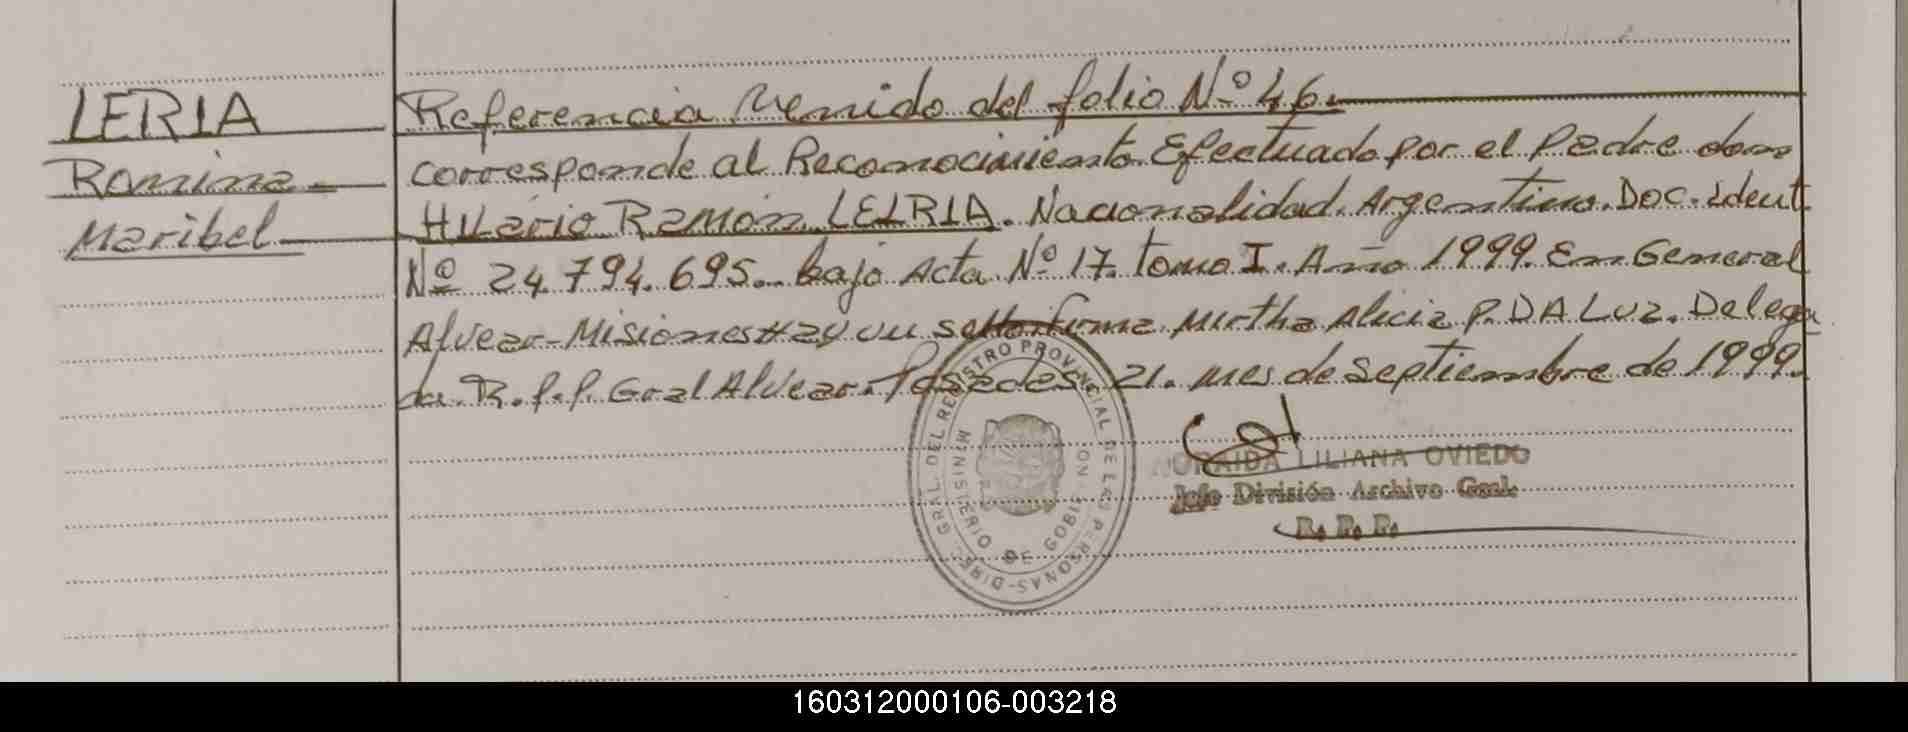 LERIA
Romina
Maribel
Referencia Venido del folio Nº 46.
corresponde al Reconocimiento Efectuado por el Padre don
HiLario Ramón LEIRIA. Nacionalidad. Argentino. Doc. ident
Nº 24.794.695.. bajo Acta Nº 17. tomo I. Año 1999. En General
Alvear-Misiones Hay un sello firma Mirtha Alicia P. DA Luz. Delega
da. R.P.P. Gral Alvear. Posadas. 21. mes de septiembre de 1999.
DIREC. GRAL. DEL REGISTRO PROVINCIAL DE LAS PERSONAS
MINISTERIO DE GOBIERNO
LILIANA OVIEDO
Jefe División Archivo Gral.
R. P. P.
160312000106-003218